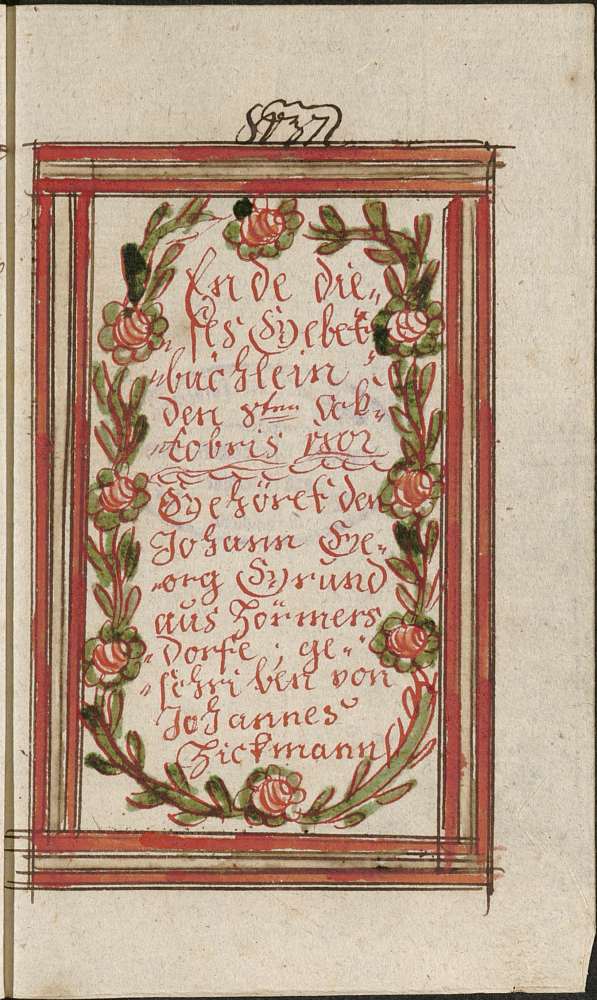 Ende die„
„ses Gebet„
„büchlein„
den 8ten Ock„
„tobris 1802
Gehöret den
Johann Ge„
„org Gründ
aus Hörmers
„dorfe, ge„
„schrieben von
Johannes
Hickmann